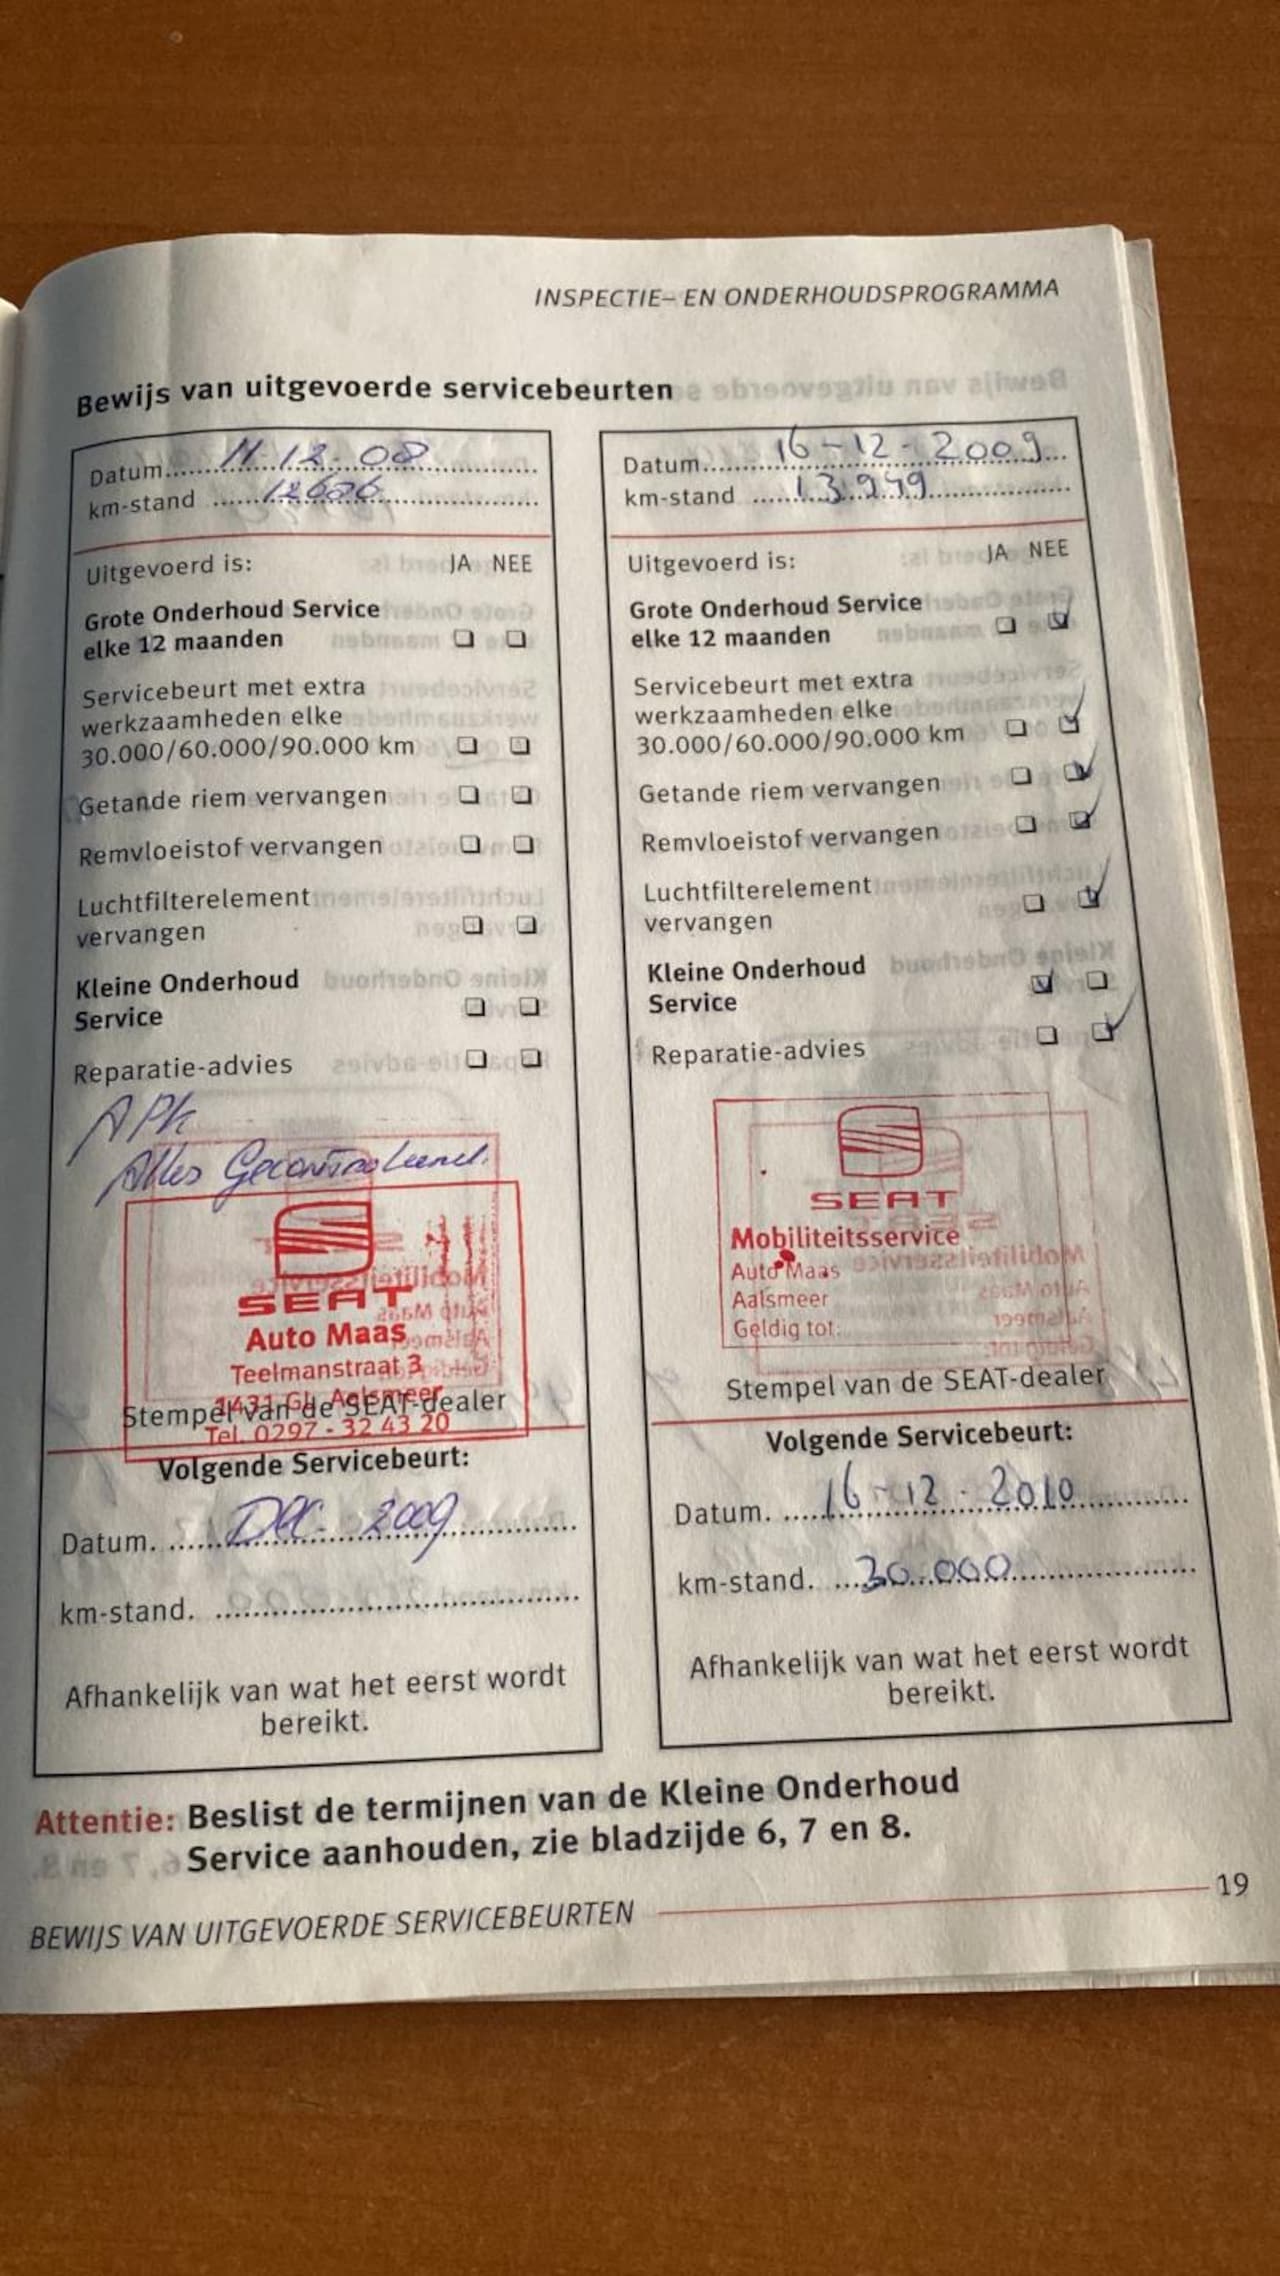 INSPECTIE- EN ONDERHOUDSPROGRAMMA
Bewijs van uitgevoerde servicebeurten
Datum 11-12-08
km-stand 12606
Uitgevoerd is: JA NEE
Grote Onderhoud Service
elke 12 maanden
Servicebeurt met extra
werkzaamheden elke
30.000/60.000/90.000 km
Getande riem vervangen
Remvloeistof vervangen
Luchtfilterelement
vervangen
Kleine Onderhoud
Service
Reparatie-advies
APK
Alles Gecontroleerd.
SEAT
Auto Maas
Teelmanstraat 3
1431 Aalsmeer
Stempel van de SEAT-dealer
Tel. 0297 - 32 43 20
Volgende Servicebeurt:
Datum. Dec. 2009
km-stand.
Afhankelijk van wat het eerst wordt
bereikt.
Datum 16-12-2009
km-stand 13.949
Uitgevoerd is: JA NEE
Grote Onderhoud Service
elke 12 maanden
Servicebeurt met extra
werkzaamheden elke
30.000/60.000/90.000 km
Getande riem vervangen
Remvloeistof vervangen
Luchtfilterelement
vervangen
Kleine Onderhoud
Service
Reparatie-advies
SEAT
Mobiliteitsservice
Auto Maas
Aalsmeer
Geldig tot:
Stempel van de SEAT-dealer
Volgende Servicebeurt:
Datum. 16-12-2010
km-stand. 30.000
Afhankelijk van wat het eerst wordt
bereikt.
Attentie: Beslist de termijnen van de Kleine Onderhoud
Service aanhouden, zie bladzijde 6, 7 en 8.
BEWIJS VAN UITGEVOERDE SERVICEBEURTEN 19